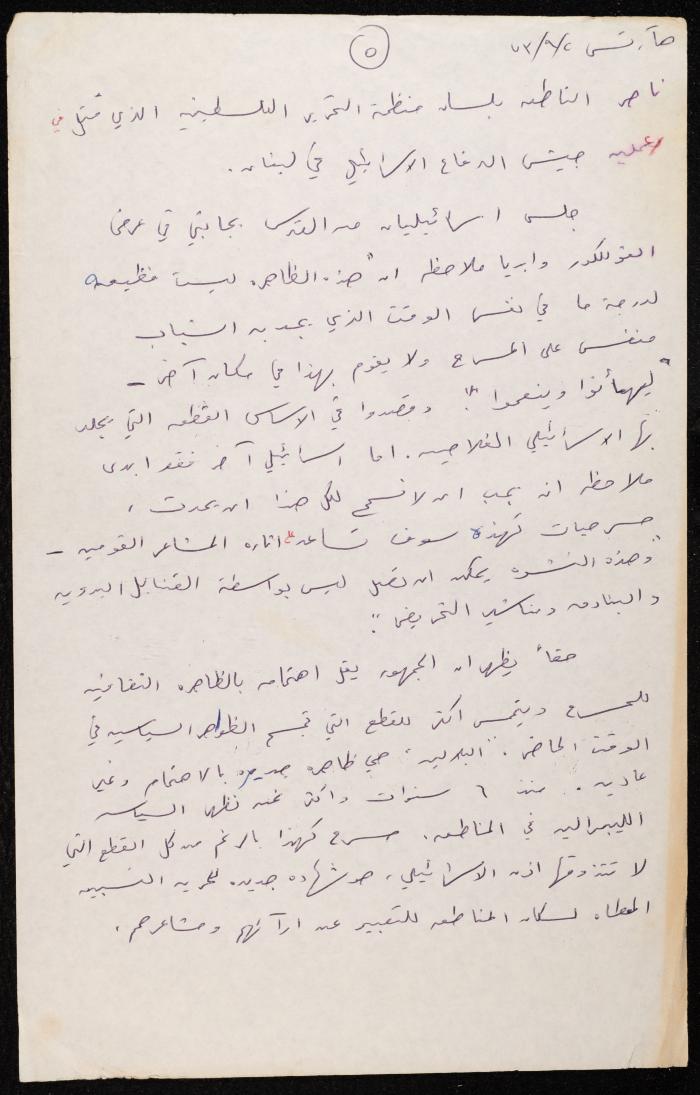 هآرتس ٧٣/٩/٢
٥
ناصر الناطق بلسان منظمة التحرير الفلسطينيه الذي قُتل في
عملية جيش الدفاع الاسرائيلي في لبنان.
جلس اسرائيليان من القدس بجانبي في عرض
الفولكلور وابديا ملاحظه ان "هذه الظاهره ليست فظيعه
لدرجة ما في نفس الوقت الذي يجد به الشباب
متنفس على المسرح ولا يقوم بهذا في مكان آخر –
"ليهنأوا وينعموا"! وقصدوا في الاساس القطعه التي يجلد
بها الاسرائيلي الفلاحين. اما اسرائيلي آخر فقد ابدى
ملاحظه انه يجب ان لا نسمح لكل هذا ان يحدث،
مسرحيات كهذه سوف تساعد على اثاره المشاعر القوميه –
"وهذه النشوه يمكن ان تصل ليس بواسطة القنابل اليدويه
والبنادق ومناشير التحريض".
حقاً يظهر ان الجمهور يقل اهتمامه بالظاهره الثقافيه
للمسرح ويتحمس اكثر للقطع التي تجسم الظواهر السياسيه في
الوقت الحاضر. "البلالين" هي ظاهره جديره بالاهتمام وغير
عاديه. منذ ٦ سنوات واكثر نحن نظهر السياسه
الليبراليه في المناطق. مسرح كهذا بالرغم من كل القطع التي
لا تتذوقها اذن الاسرائيلي، هو شهاده جديده للحريه النسبيه
المعطاه لسكان المناطق للتعبير عن ارآئهم ومشاعرهم.